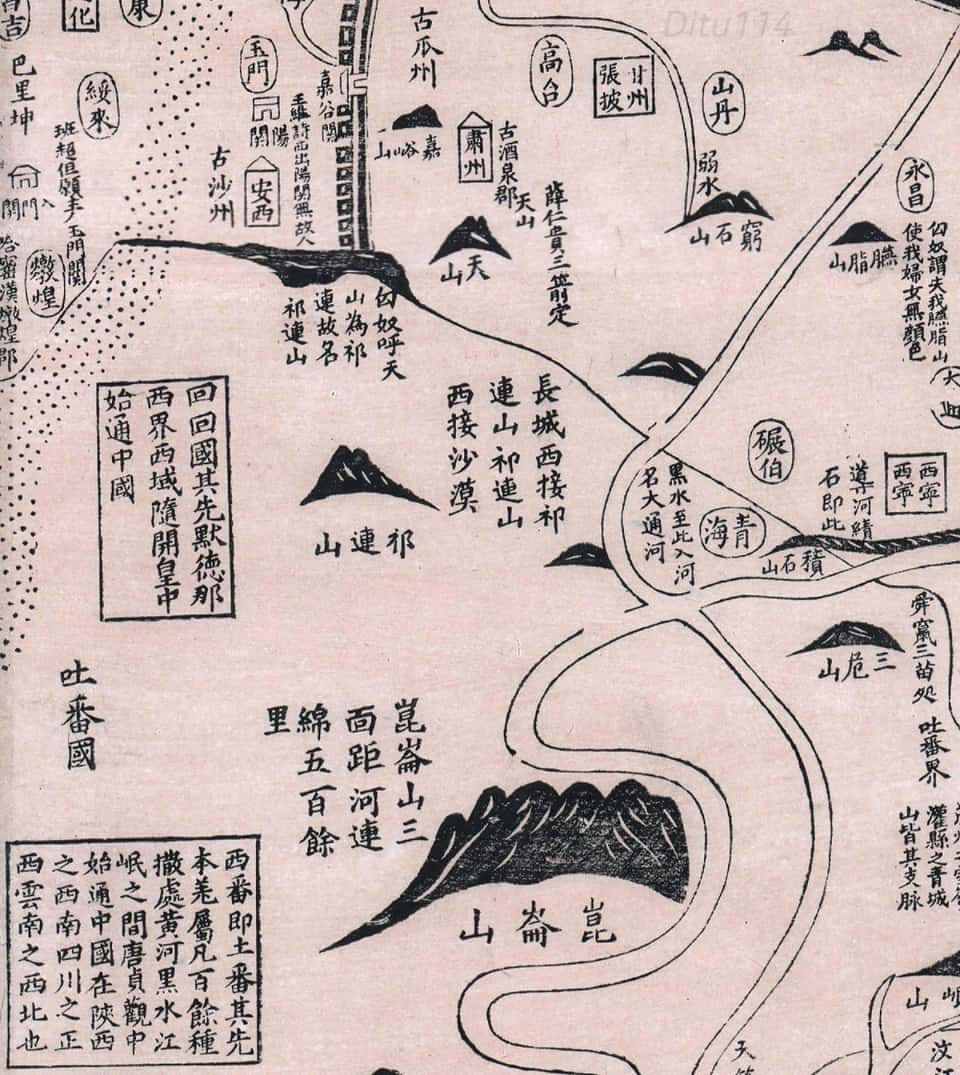 Ditu114
昌吉
化
康
巴里坤
綏來
班超但願生入玉門關
門關
燉煌
古沙州
玉門
陽關
安西
嘉谷關
西出陽關無故人
古瓜州
嘉峪山
肅州
古酒泉郡
天山
薛仁貴三箭定
天山
高台
甘州
張掖
山丹
弱水
窮石山
永昌
臙脂山
匈奴謂失我臙脂山
使我婦女無顏色
匈奴呼天
山為祁
連故名
祁連山
長城西接祁
連山祁連山
西接沙漠
回回國其先默德那
西界西域隨開皇中
始通中國
祁連山
黑水至此入河
名大通河
碾伯
青海
西寧
西寧
導河積
石即此
積石山
三危山
舜竄三苗処
吐番界
灌縣之青城
山皆其支脉
吐番國
崑崙山三
面距河連
綿五百餘
里
崑崙山
西番即土番其先
本羌屬凡百餘種
撒處黃河黑水江
岷之間唐貞觀中
始通中國在陝西
之西南四川之正
西雲南之西北也
岷山
汶江